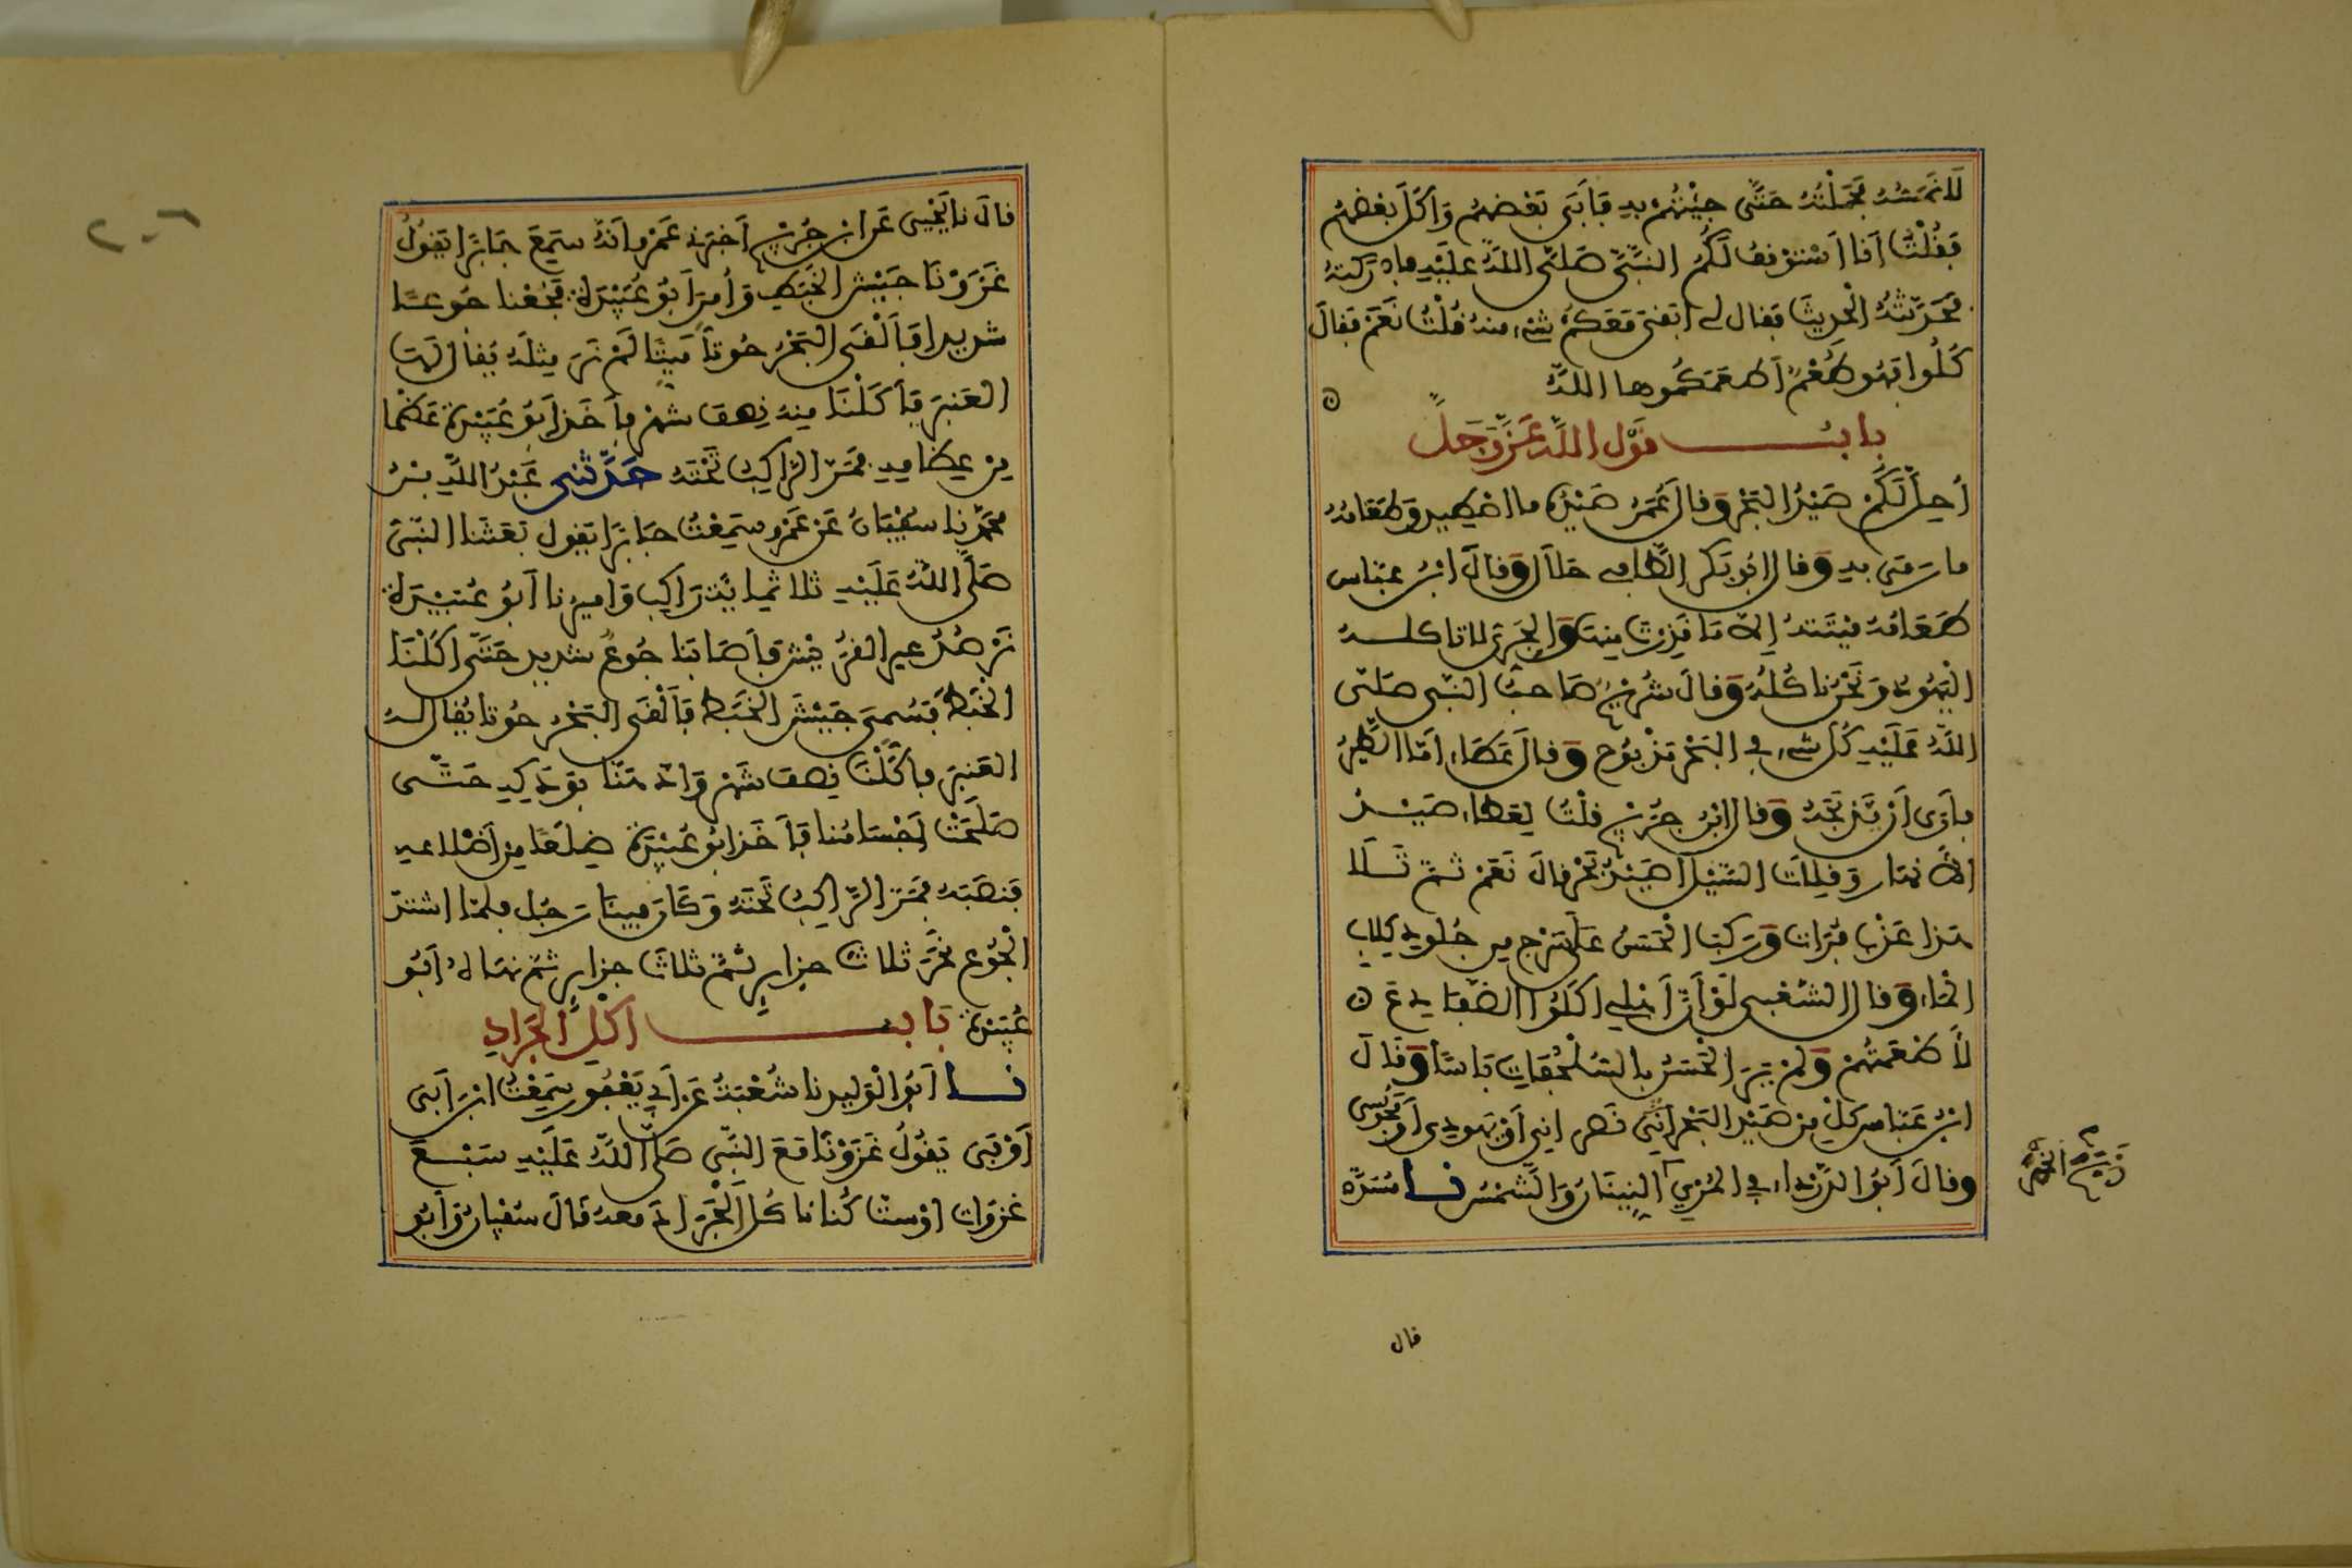 لا نمسه فحملته حتى جيتهم به فأبى بعضهم وأكل بعضهم
فقلت أنا أستوقف لكم النبي صلى الله عليه فادركته
فحدثته الحديث فقال لي أبقي معكم شيء منه قلت نعم فقال
كلوا فهو طعم أطعمكموها الله
باب قول الله عز وجل
أحل لكم صيد البحر وقال عمر صيده ما اصطيد وطعامه
ما رمى به وقال ابو بكر الطافي حلال وقال ابن عباس
طعامه ميتته إلا ما قذرت منها والجري لا تاكله
اليهود ونحن ناكله وقال شريح صاحب النبي صلى
الله عليه كل شيء في البحر مذبوح وقال عطاء أما الطير
فأرى أن يذبحه وقال ابن جريج قلت لعطاء صيد
الأنهار وقلات السيل أصيد بحر قال نعم ثم تلا
هذا عذب فرات وركب الحسن على سرج من جلود كلاب
الماء وقال الشعبي لو أن أهلي أكلوا الضفادع
لأطعمتهم ولم ير الحسن بالسلحفات باسا وقال
ابن عباس كل من صيد البحر نصراني أو يهودي أو مجوسي
وقال أبو الدرداء في المري النينان والشمس نا مسدد
ذبح الخمر
قال
قال نا يحيى عن ابن جريج أخبرني عمرو أنه سمع جابرا يقول
غزونا جيش الخبط وأمر أبو عبيدة فجعنا جوعا
شديدا فألقى البحر حوتا ميتا لم نر مثله يقال له
العنبر فأكلنا منه نصف شهر فأخذ أبو عبيدة عظما
من عظامه فمر الراكب تحته حدثني عبد الله بن
محمد نا سفيان عن عمرو سمعت جابرا يقول بعثنا النبي
صلى الله عليه ثلاثمائة راكب وأميرنا أبو عبيدة
نرصد عير القريش فأصابنا جوع شديد حتى أكلنا
الخبط فسمي جيش الخبط فألقى البحر حوتا يقال له
العنبر فأكلنا نصف شهر وادهنا بودكه حتى
صلحت أجسامنا فأخذ أبو عبيدة ضلعا من أضلاعه
فنصبه فمر الراكب تحته وكان فينا رجل فلما اشتد
الجوع نحر ثلاث جزاير ثم ثلاث جزاير ثم نهاه أبو
عبيدة باب أكل الجراد
نا أبو الوليد نا شعبة عن أبي يعفور سمعت ابن أبي
أوفى يقول غزونا مع النبي صلى الله عليه سبع
غزوات أو ستا كنا ناكل الجراد معه قال سفيان وأبو